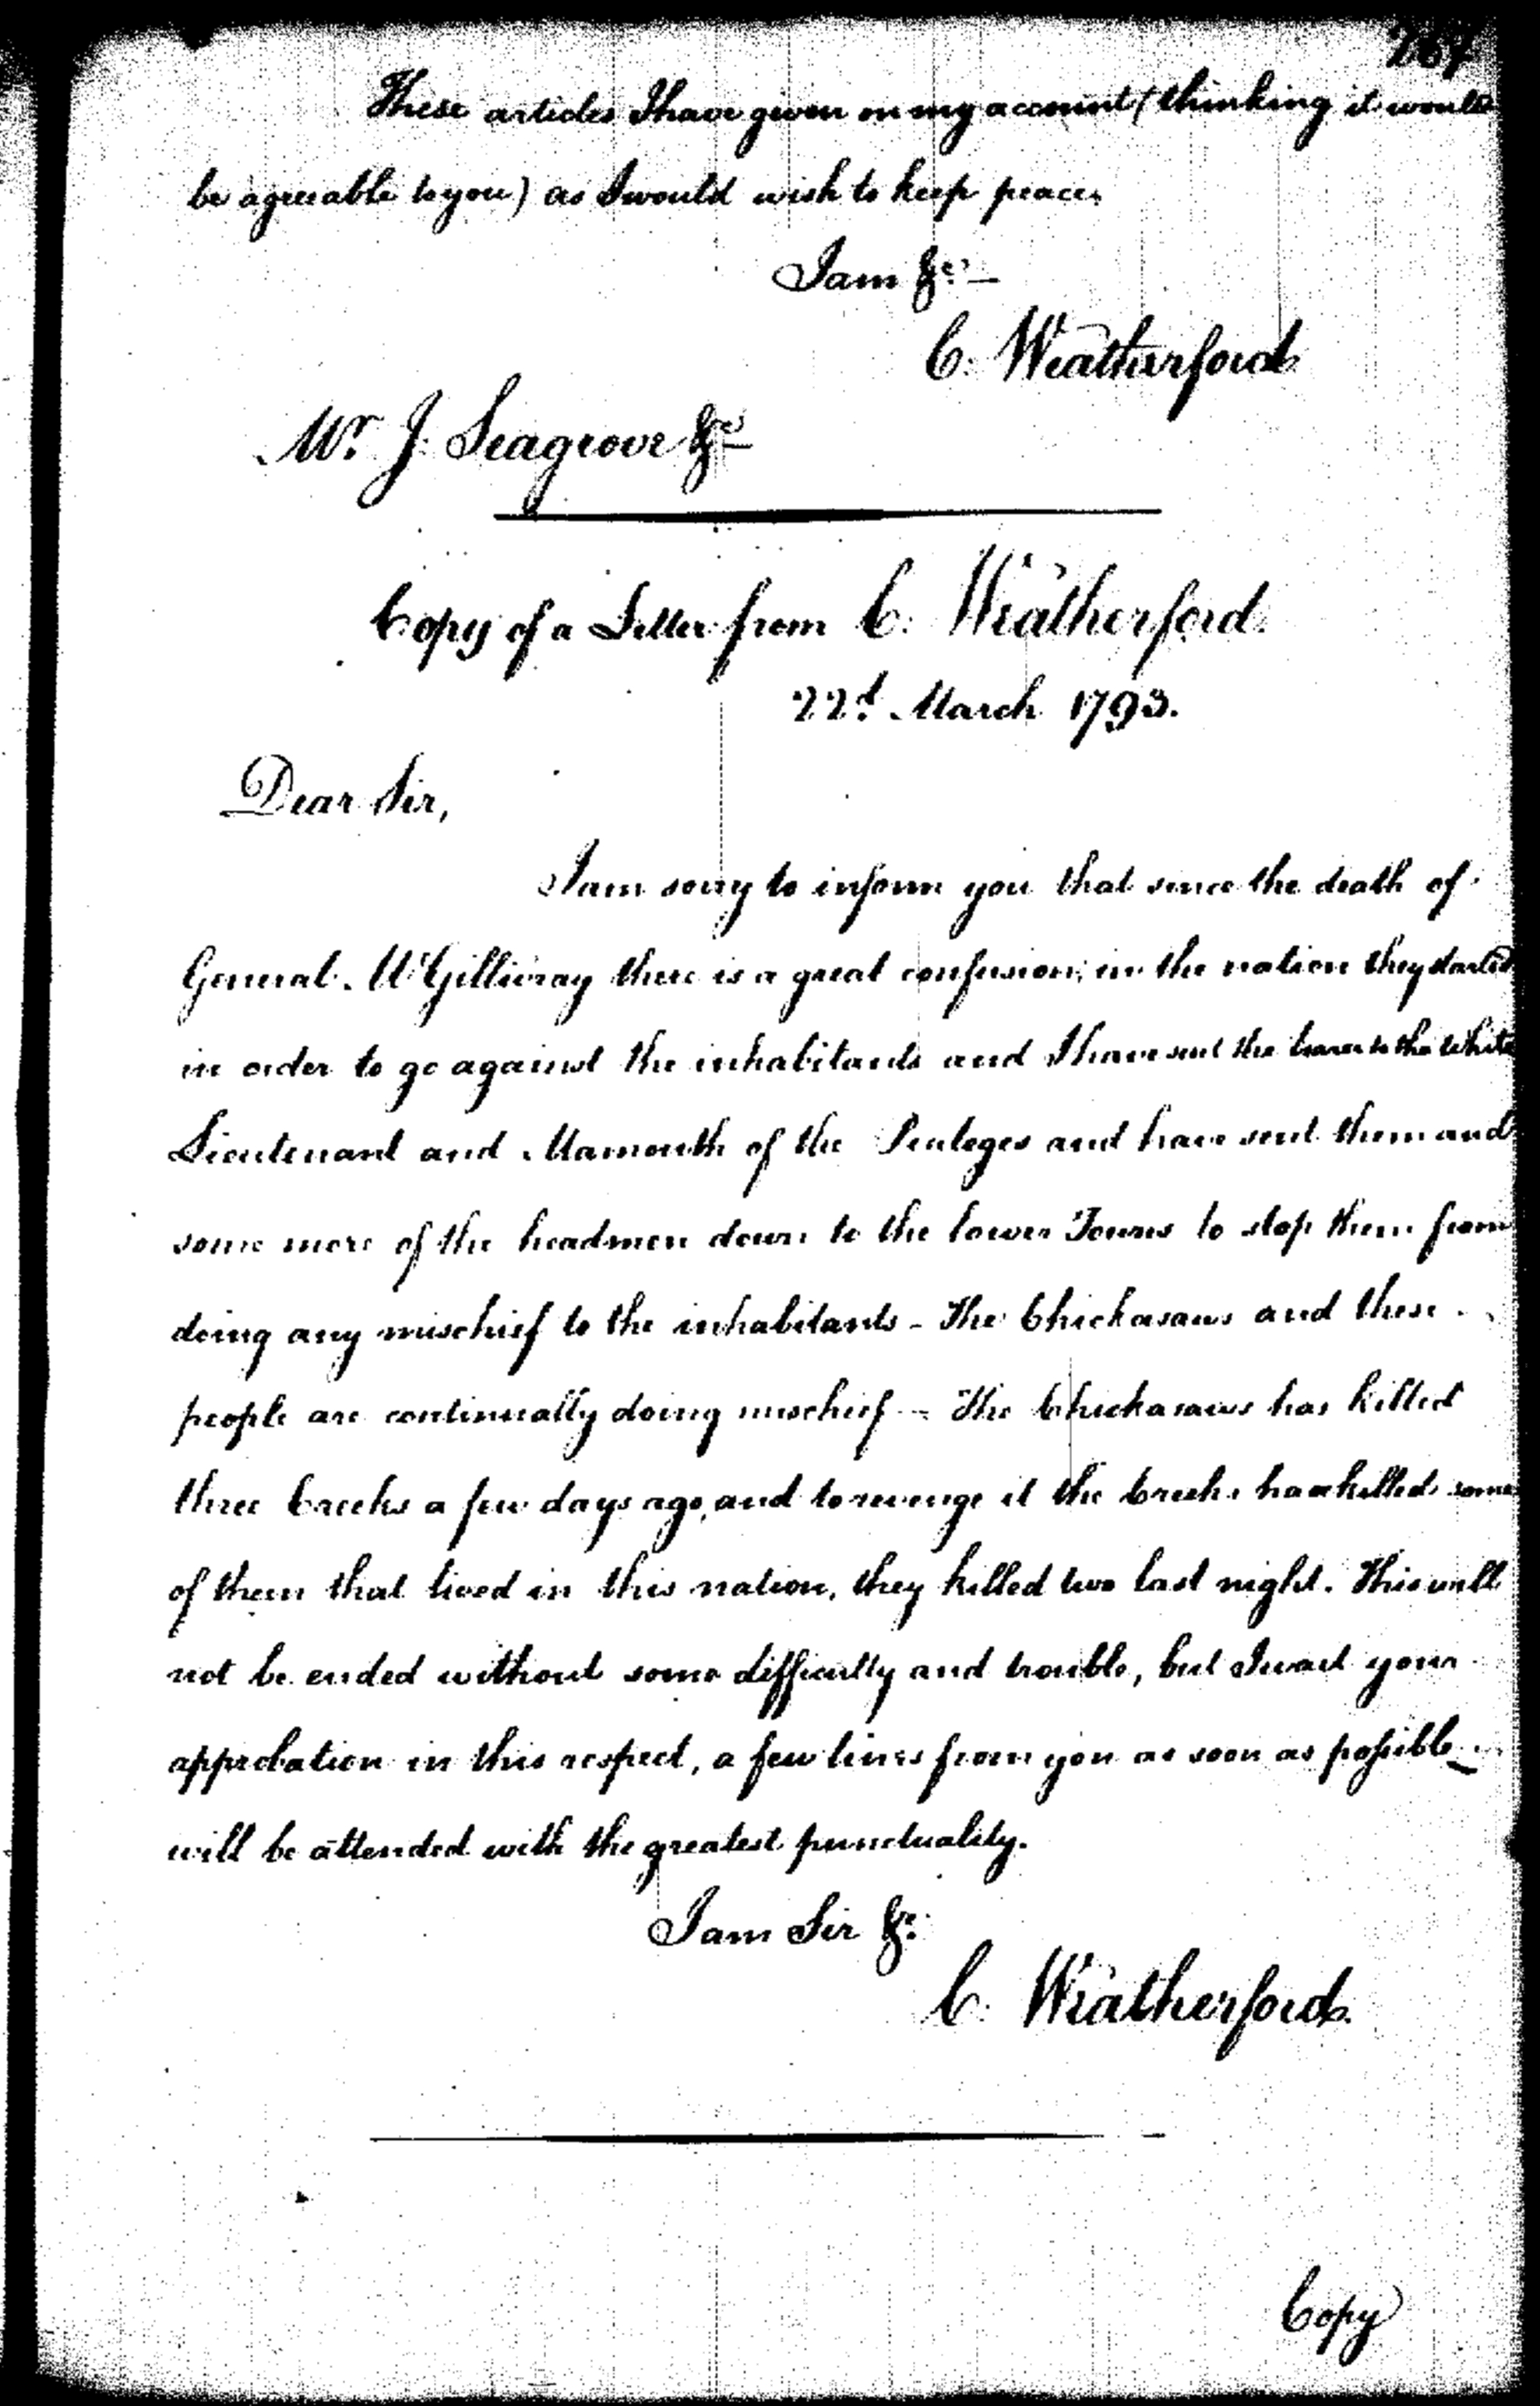 267
These articles I have given on my account (thinking it would
be agreeable to you) as I would wish to keep peace.
I am &c.
C. Weatherford
Mr. J. Seagrove &c
Copy of a Letter from C. Weatherford.
22d. March 1793.
Dear Sir,
I am sorry to inform you that since the death of
General McGillivray there is a great confusion; in the nation they started
in order to go against the inhabitants and I have sent the bearer to the White
Lieutenant and Mamouth of the and have sent them and
some more of the headmen down to the lower Towns to stop them from
doing any mischief to the inhabitants - The Chickasaws and these
people are continually doing mischief - The Chickasaws has killed
three Creeks a few days ago, and to revenge it the Creeks have killed some
of them that lived in this nation, they killed two last night. This will
not be ended without some difficulty and trouble, but I wait your
approbation in this respect, a few lines from you as soon as possible
will be attended with the greatest punctuality.
I am Sir &c.
C. Weatherford.
Copy